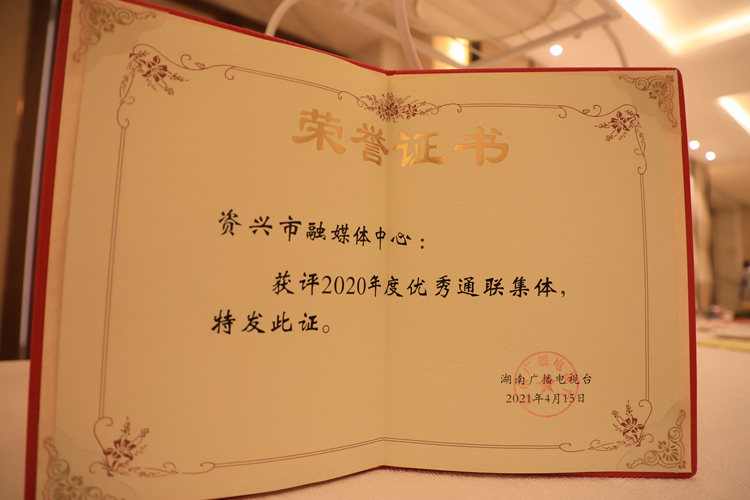 荣誉证书
资兴市融媒体中心：
获评2020年度优秀通联集体，
特发此证。
湖南广播电视台
2021年4月15日